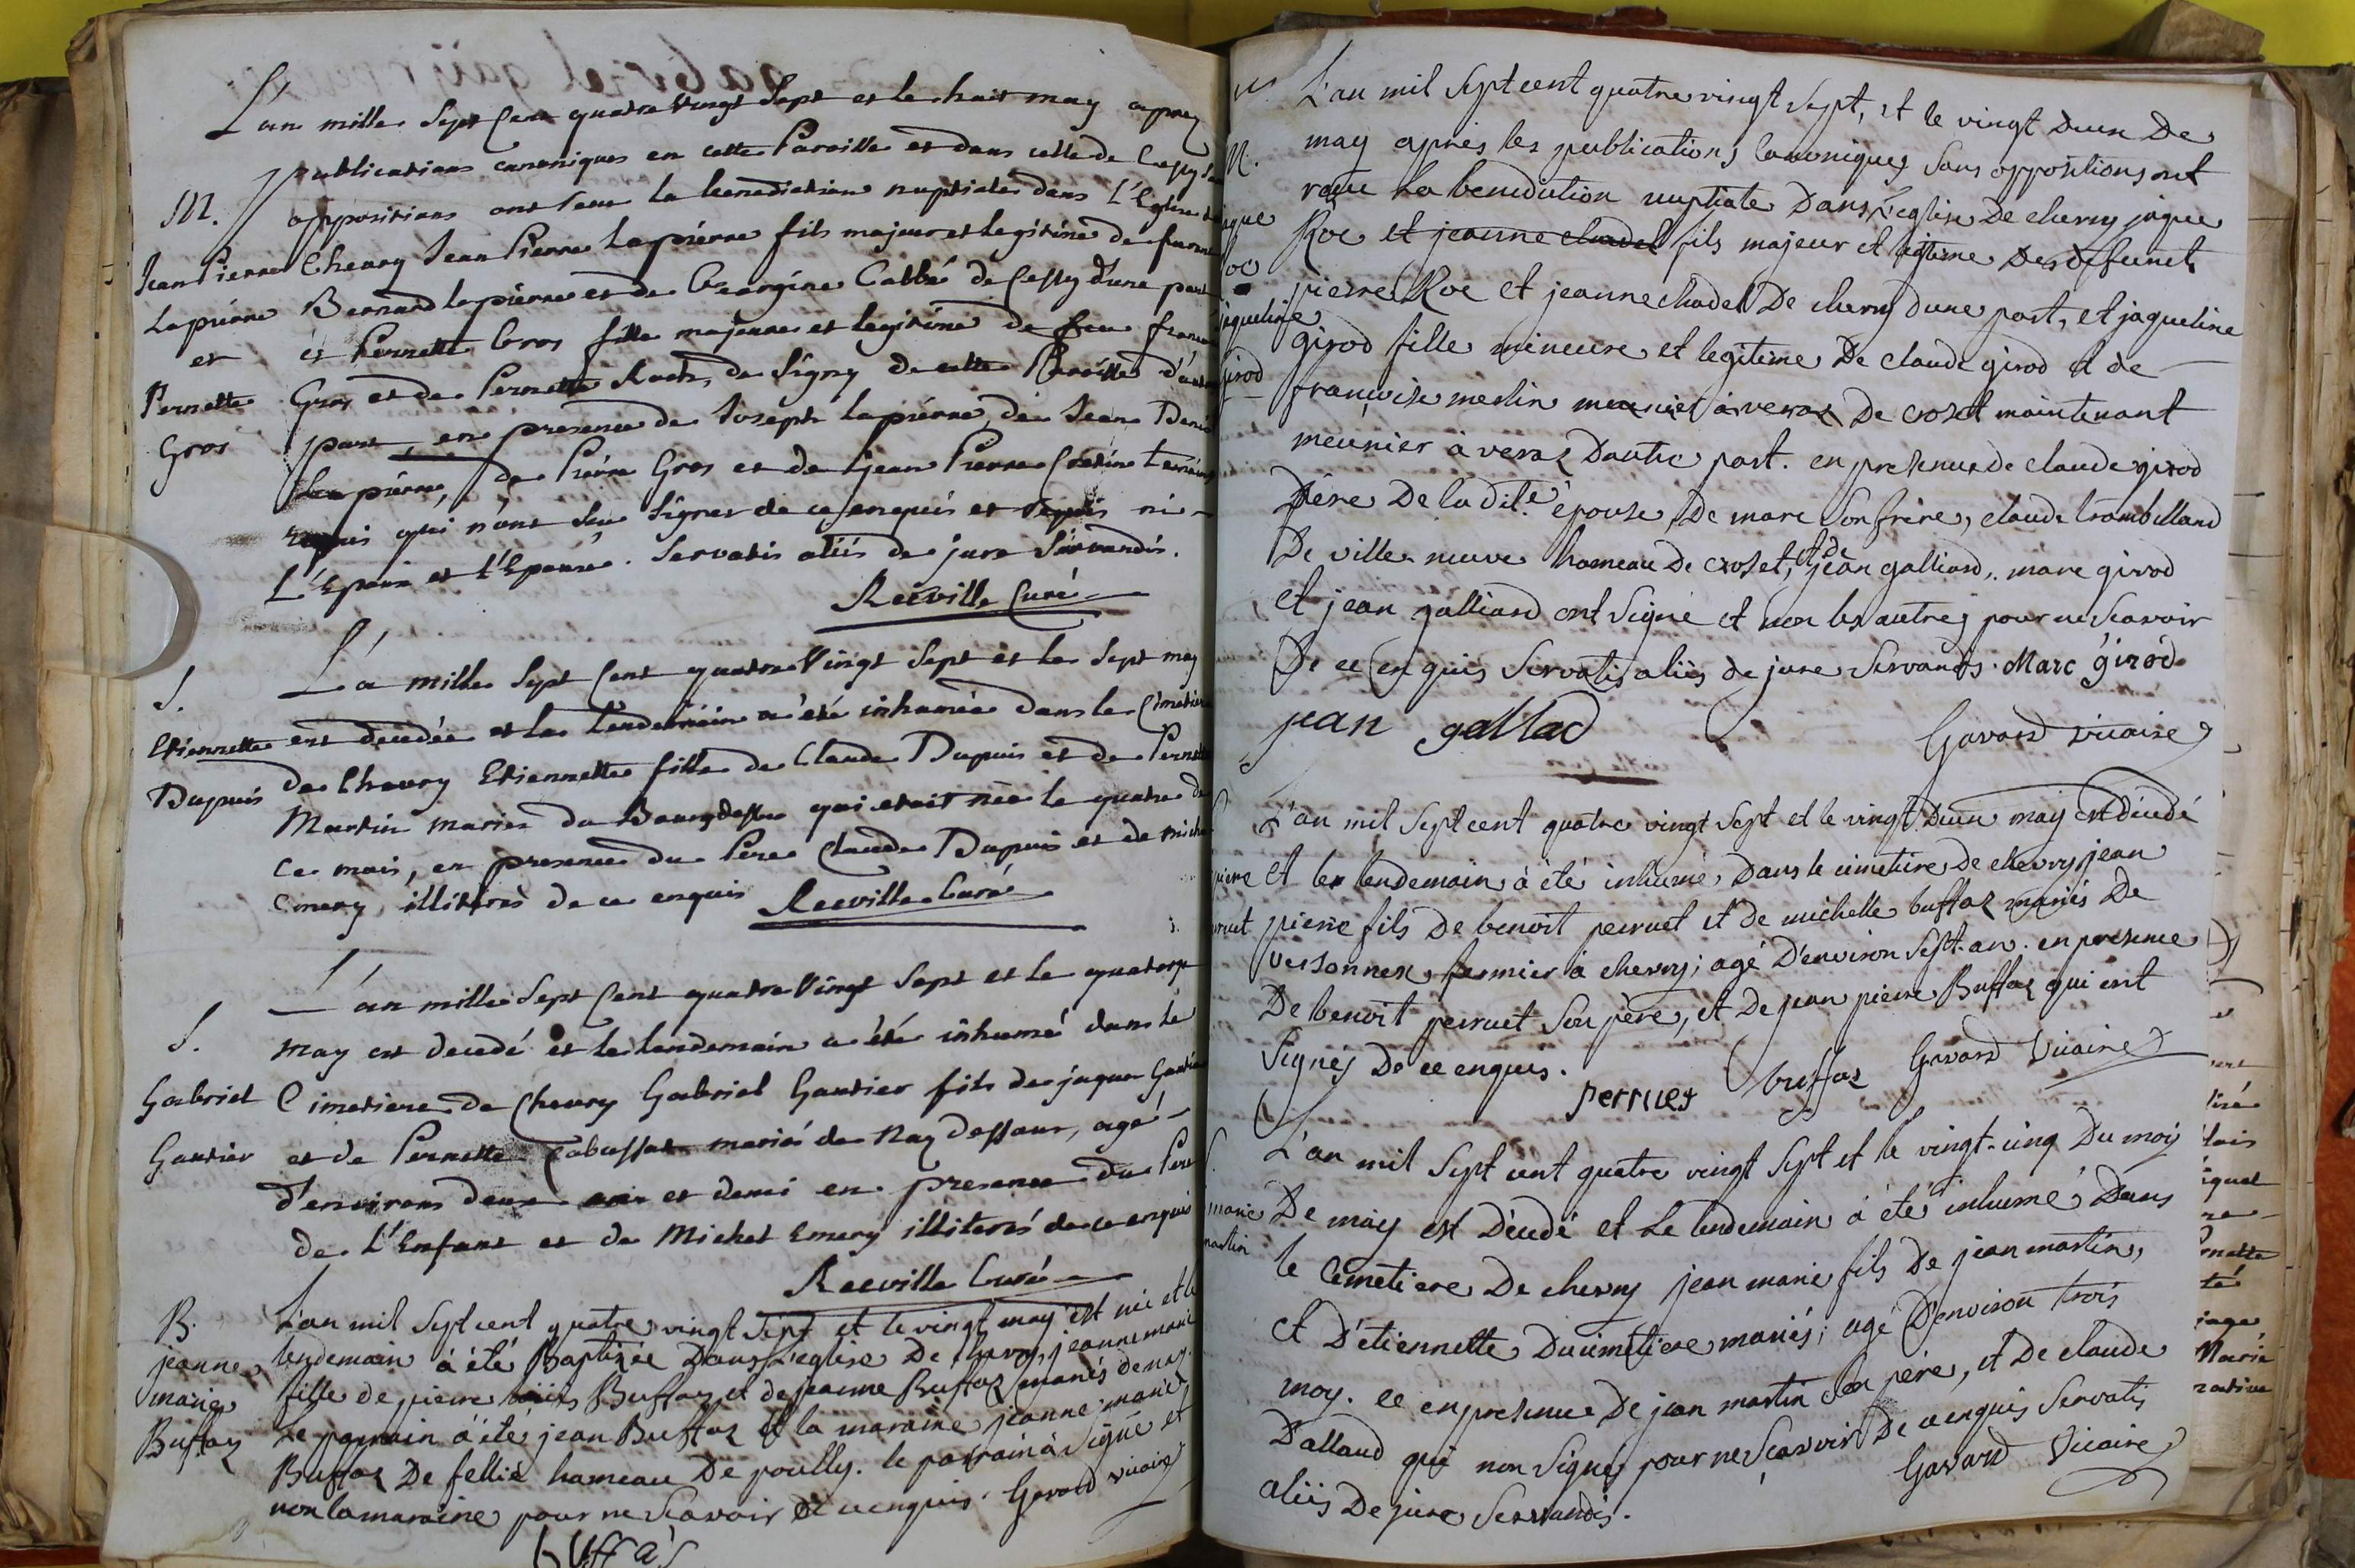 L'an mille Sept Cent quatre Vingt Sept et le huit may aprez
M.
publications canoniques en cette Paroisse et dans celle de Cessy sans
oppositions ont reçu la benediction nuptiale dans L'Eglise de
Jean Pierre
Lapierre
et
Pernette
Gros
Chevry Jean Pierre Lapierre fils majeur et legitime de feu
Bernard lapierre et de Georgine Cabbé de Cessy d'une part
et Pernette Gros fille majeure et legitime de feu françois
Gros et de Pernette Roch de Signy de cette Paroisse d'autre
part, en presence de Joseph lapierre, de Jean Denis
Lapierre, de Pierre Gros et de Jean Pierre Cretin temoins
requis qui n'ont Seu Signer de ce enquis et requis ni
L'Epoux et L'Epouse. Servatis aliis de jure Servandis.
Reeville Curé
S.
L'a mille Sept Cent quatre Vingt Sept et le Sept may
Etiennette
Dupuis
est decedée et le Lendemain a été inhumée dans le Cimetiere
de Chevry Etiennette fille de Claude Dupuis et de Pernette
Martin mariés du Bourg dessus qui etoit née le quatre de
ce mois, en presence du Pere Claude Dupuis et de michel
Emery illitérés de ce enquis Reeville Curé
S.
L'an mille Sept Cent quatre Vingt Sept et le quatorze
may est decedé et le lendemain a été inhumé dans le
Gabriel
Gautier
Cimetiere de Chevry Gabriel Gautier fils de jaque Gautier
et de Pernette Tabussat mariés de Naz dessous, agé
d'environ deux ans et demi en presence du Pere
de L'Enfant et de Michel Emery illiterés de ce enquis
Reeville Curé
B.
jeanne
marie
Buffaz
L'an mil Sept cent quatre vingt Sept et le vingt may est née et le
lendemain à été Baptisée Dans L'eglise De chevry jeanne marie
fille de pierre Buffaz et de jeanne Buffaz mariés de naz.
Le parrain à été jean Buffaz et la maraine jeanne marie
Buffaz De fellié hameau De poully. le parrain à Signé et
non la maraine pour ne Scavoir de ce enquis. Gavard vicaire
buffàs
L'an mil Sept cent quatre vingt Sept, et le vingt Deux De
M.
may après les publications canoniques Sans oppositions ont
reçu La benediction nuptiale Dans l'eglise De chevry jaque
jaque
Roc
jaqueline
girod
Roc et jeanne chadel fils majeur et legitime Des Defunts
pierre Roc et jeanne chadel De chevry dune part, et jaqueline
girod fille mineure et legitime De claude girod et de
françoise merlin meunier à veraz De crozet maintenant
meunier à veraz D'autre part. en presence de claude girod
père De la dite épouse, De marc Son frère, claude trambilland
De ville neuve hameau De crozet, et de jean galliard. marc girod
et jean galliard ont Signé et non les autres pour ne Scavoir
De ce enquis Servatis aliis de jure Servandis. Marc girod
jean gallad
Gavard vicaire
L'an mil Sept cent quatre vingt Sept et le vingt Deux may est décedé
et le lendemain à été inhumé Dans le cimetiere De chevry jean
pierre
perruet
pierre fils De benoit perruet et de michelle buffaz mariés De
versonnex fermier à chevry; agé D'environ Sept an. en presence
De benoit perruet Son père, et De jean pierre Buffaz qui ont
Signés De ce enquis. perruet buffaz Gavard Vicaire
L'an mil Sept cent quatre vingt Sept et le vingt-cinq Du mois
marie
martin
De may est Décedé et Le lendemain à été inhumé Dans
le Cimetiere De chevry jean marie fils De jean martin,
et D'étiennette Ducimetiere mariés; agé D'environ trois
moy. ce en presence De jean martin Son père, et De claude
D'alland qui non Signés pour ne Scavoir De ce enquis Servatis
aliis De jure Servandis.
Gavard Vicaire